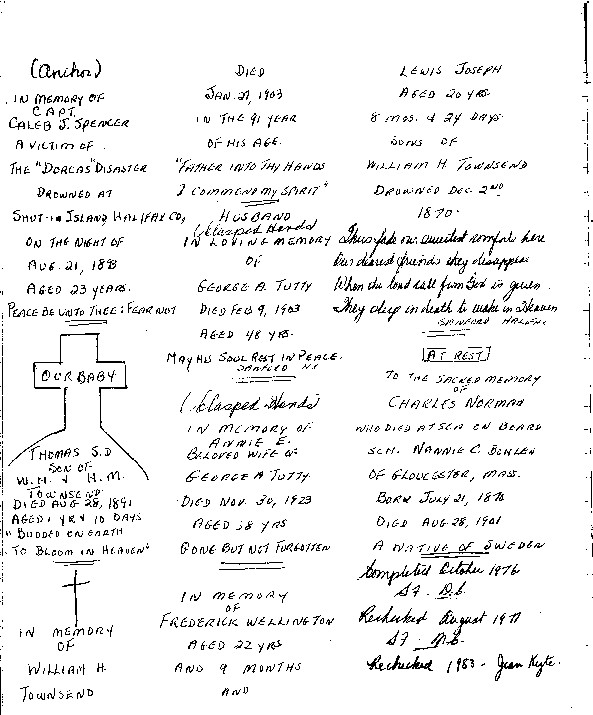 (Anchor)
IN MEMORY OF
CAPT.
CALEB J. SPENCER
A VICTIM OF
THE "DORCAS" DISASTER
DROWNED AT
SHUT-IN ISLAND HALIFAX CO,
ON THE NIGHT OF
AUG. 21, 1893
AGED 23 YEARS.
PEACE BE UNTO THEE: FEAR NOT
OUR BABY
THOMAS S.D
SON OF
W.H. & H.M.
TOWNSEND
DIED AUG 28, 1891
AGED 1 YR & 10 DAYS
"BUDDED ON EARTH
TO BLOOM IN HEAVEN"
IN MEMORY
OF
WILLIAM H.
TOWNSEND
DIED
JAN. 27, 1903
IN THE 91 YEAR
OF HIS AGE.
"FATHER INTO THY HANDS
I COMMEND MY SPIRIT"
HUSBAND
(Clasped Hands)
IN LOVING MEMORY
OF
GEORGE A. TUTTY
DIED FEB 9, 1903
AGED 48 YRS.
MAY HIS SOUL REST IN PEACE.
(Clasped Hands)
IN MEMORY OF
ANNIE E.
BELOVED WIFE OF
GEORGE A TUTTY.
DIED NOV. 30, 1923
AGED 58 YRS
GONE BUT NOT FORGOTTEN
IN MEMORY
OF
FREDERICK WELLINGTON
AGED 22 YRS
AND 9 MONTHS
AND
LEWIS JOSEPH
AGED 20 YRS
8 MOS. & 24 DAYS.
SONS OF
WILLIAM H. TOWNSEND
DROWNED DEC. 2ND
1870.
Thus fade our sweetest comforts here
Our dearest friends they disappear
When the loud call from God is given
They sleep in death to wake in Heaven
AT REST
TO THE SACRED MEMORY
OF
CHARLES NORMAN
WHO DIED AT SEA ON BOARD
SCH. NANNIE C. BOHLEN
OF GLOUCESTER, MASS.
BORN JULY 21, 1878
DIED AUG 28, 1901
A NATIVE OF SWEDEN
Completed October 1976
Rechecked August 1977
Rechecked 1983 - Jean Kyte.